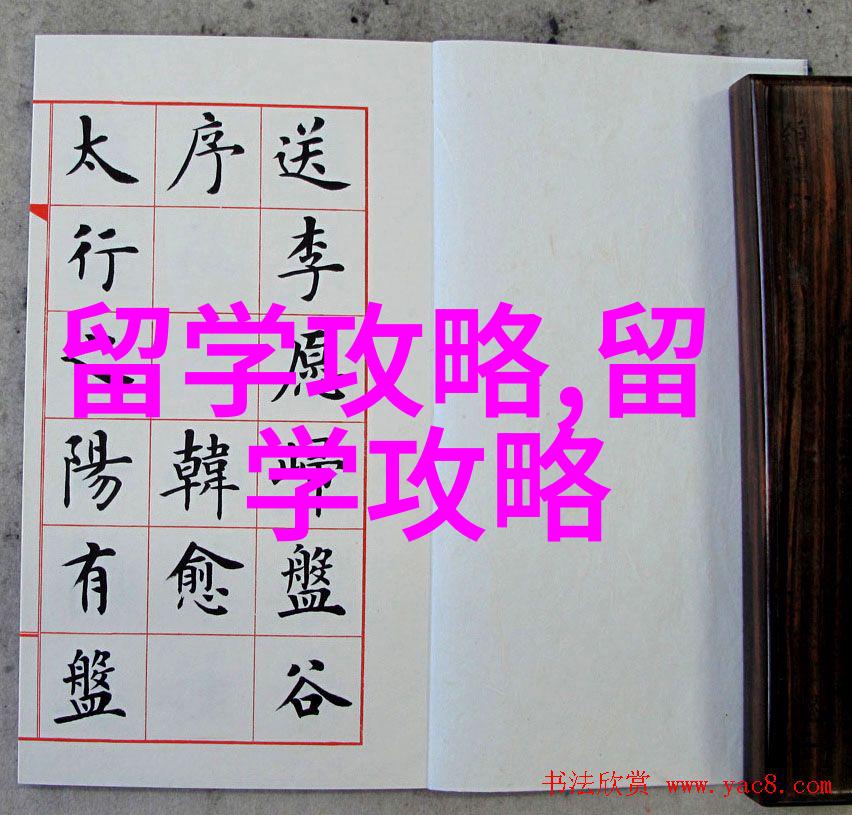 送李愿歸盤谷
序 韓愈
太行之陽有盤
留学攻略,留
学攻略
书法欣赏 www.yac8.com